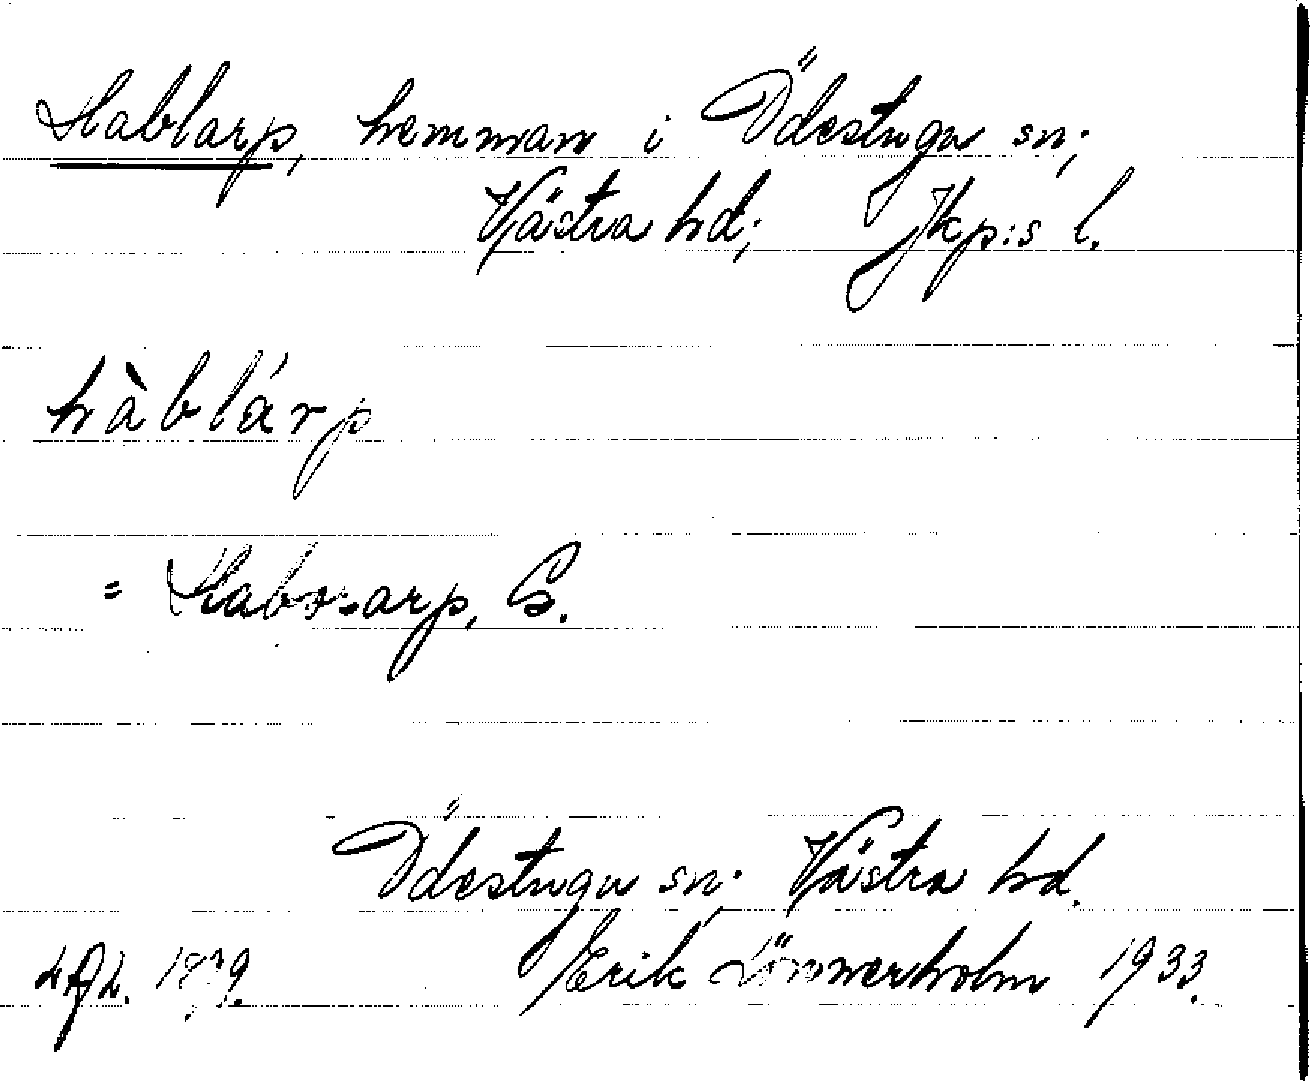 Hablarp, hemman i Ödestugu sn;
Västra hd; Jkp:s l.
hàblárp
= Habosarp, G.
Ödestugu sn; Västra hd.
Erik Lönnerholm 1933.